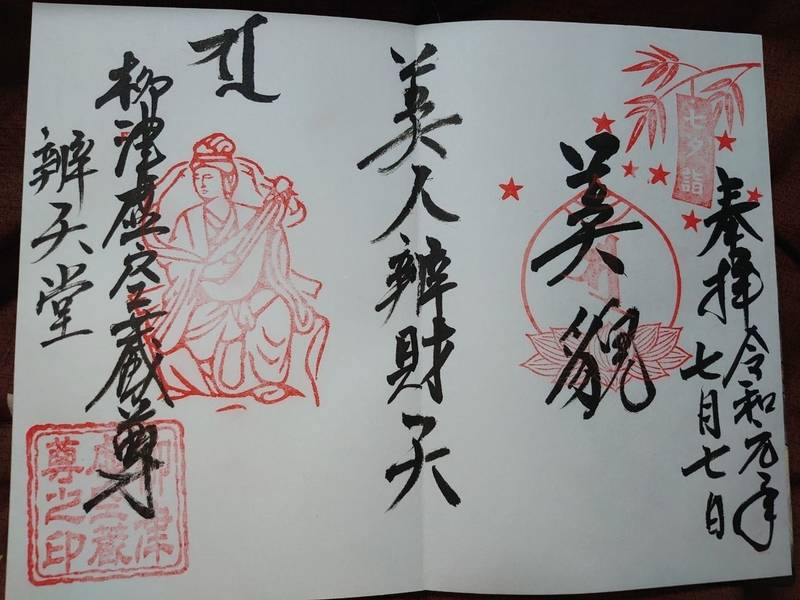 七夕詣
奉拝
令和元年
七月七日
美貌
美人辨財天
柳津虚空蔵尊
辨天堂
柳津
虚空蔵
尊之印